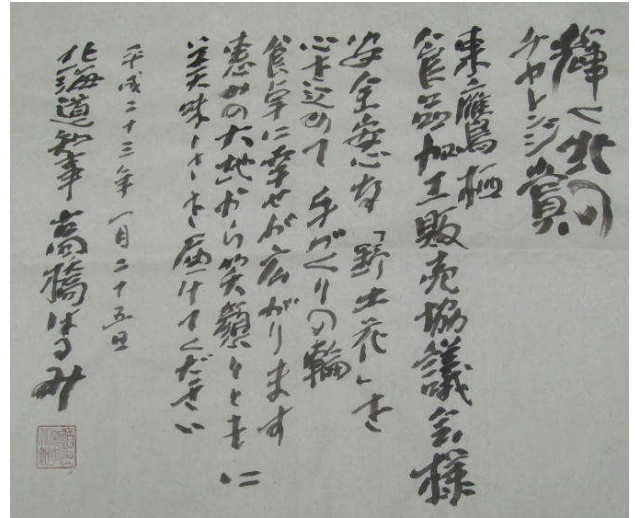 輝く北の
チャレンジ賞
東鷹栖
食品加工販売協議会様
安全無心な「野土花」を
心を込めて 手づくりの輪
食卓に幸せが広がります
恵みの大地から笑顔とともに
美味しさを届けてください
平成二十三年 一月二十五日
北海道知事 高橋はるみ